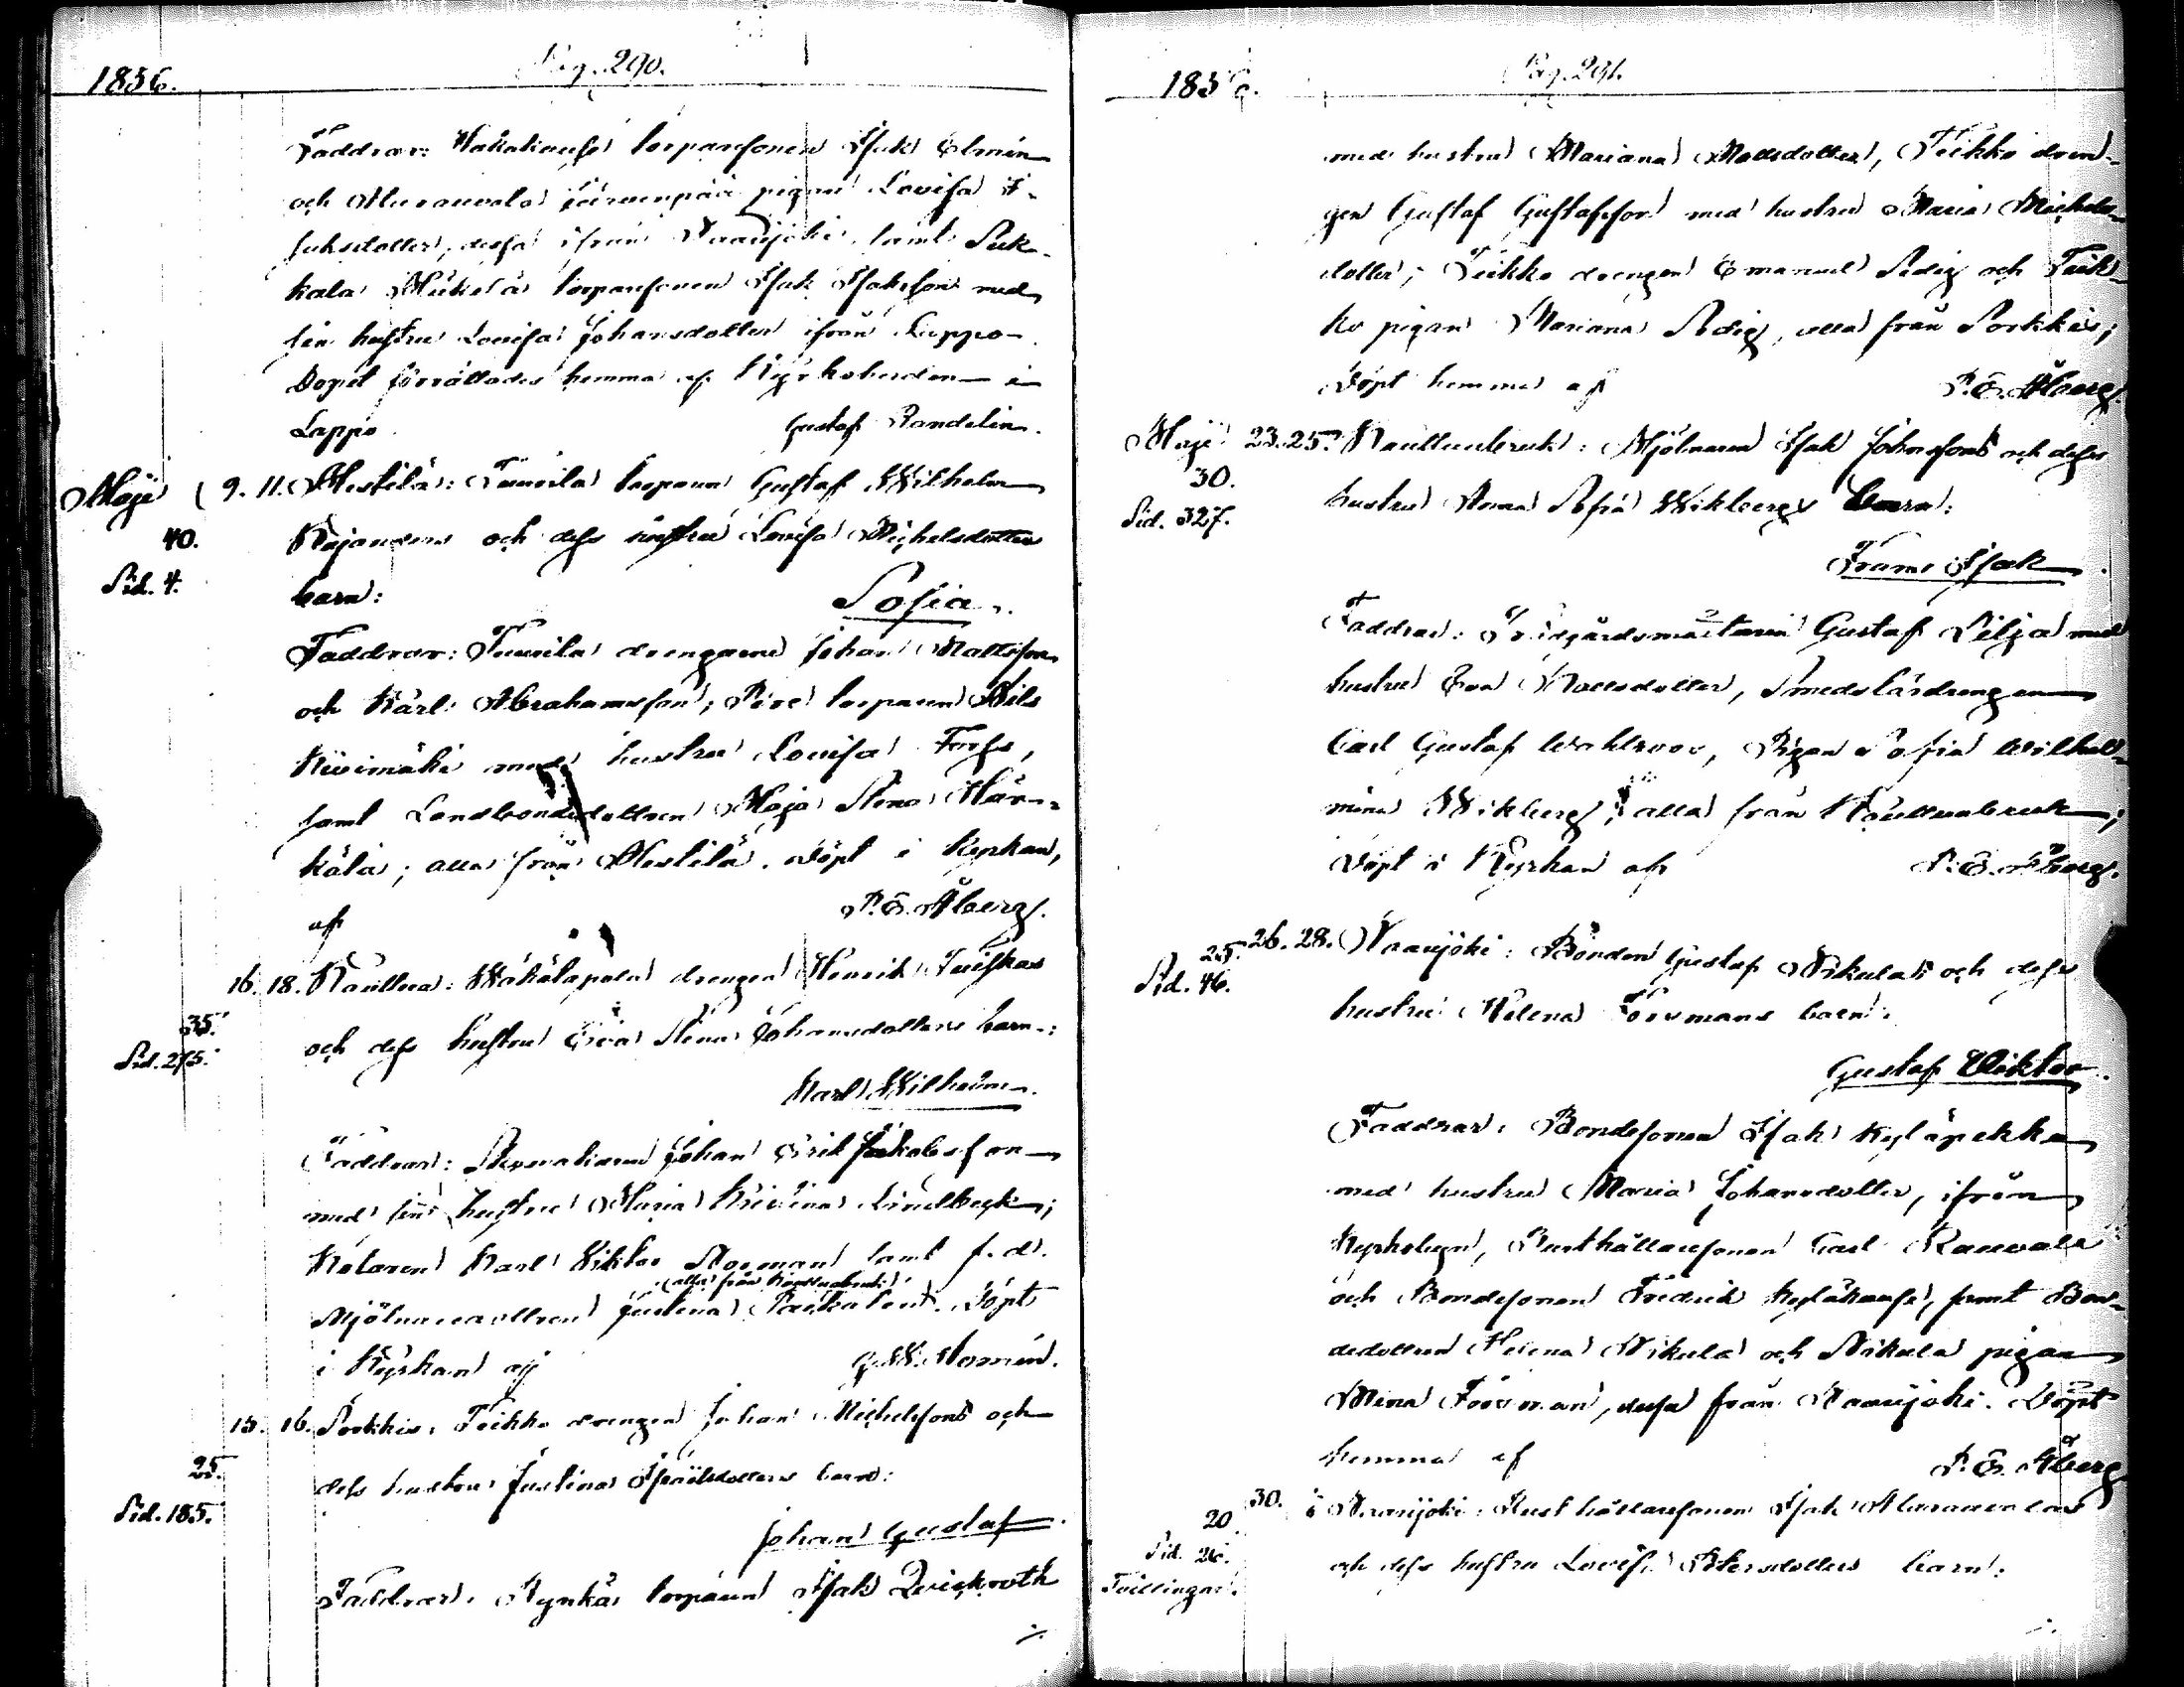 1856.
Pag. 290.
Faddrar: Wähäkausse torparesonen Isak Elmén
och Murauvola Järvenpää pigan Lovisa I-
saksdotter, dessa ifrån Naarijoki, samt Suk-
kala Mäkelä torparesonen Isak Isaksson med
sin hustru Lovisa Johansdotter ifrån Lappo.
Dopet förrättades hemma af Kyrkoherden i
Lappo Gustaf Randelin.
Maji 9. 11. Mestilä: Tuurila torparen Gustaf Wilhelm
40. Kajanders och dess hustru Lovisa Michelsdotters
Sid. 4. barn:
Sofia.
Faddrar: Tuurila drengarne Johan Mattsson
och Karl Abrahamsson; Torparen Nils
Kivimäki med hustru Lovisa Forss,
samt Landbondedottren Maja Stina Här-
kälä; alla från Mestilä. Döpt i Kyrkan,
af P. E. Åberg.
16. 18. Kauttua: Wähätapola drengen Henrik
35. och dess hustru Eva Stina Johansdotters barn:
Sid. 275.
Karl Wilhelm.
Faddrar: Johan Erik Jakobsson
med sin hustru Maria Kristina Lindbeck;
Kolaren Karl Viktor Norman samt f. d.
(alla från Kauttuabruk)
Mjölnaredottren Justina. Döpt
i Kyrkan af G. W. Homén.
15. 16. Sorkkis: Teikko drengen Johan Michelssons och
25. dess hustru Justina Isaksdotters barn:
Sid. 185.
Johan Gustaf.
Faddrar: Kynkä torparen Isak Quickroth
./.
1856.
Pag. 291.
med hustru Mariana Mattsdotter, Teikko dren-
gen Gustaf Gustafsson med hustru Maria Michels-
dotter; Teikko drengen Emanuel Sedig och Teik-
ko pigan Mariana Sedig, alla från Sorkkis;
Döpt hemma af P. E. Åberg.
Maji 23. 25. Kauttuabruk: Mjölnaren Isak Johnssons och dess
30. hustru Anna Sofia Wikbergs barn:
Sid. 327.
Frans Isak.
Faddrar: Trädgårdsmästaren Gustaf Silja med
hustru Eva Mattsdotter, Smedslärdrengen
Carl Gustaf Wahlroos, Pigan Sofia Wilhel-
mina Wikberg; alla från Kauttuabruk;
Döpt i Kyrkan af P. E. Åberg.
26. 28. Naarijoki: Bonden Gustaf Nikulas och dess
25. hustru Helena Forsmans barn:
Sid. 46.
Gustaf Viktor.
Faddrar: Bondesonen Isak Kyläpekka
med hustru Maria Johansdotter, ifrån
Kyrkobyn, Rusthållaresonen Carl Rauvala
och Bondesonen Fredrik Kyläkausse, samt Bon-
dedottren Helena Nikula och Nikula pigan
Mina Forsman, dessa från Naarijoki. Döpt
hemma af P. E. Åberg
30. Naarijoki: Rusthållaresonen Isak Murauvolas
20. och dess hustru Lovisa Petersdotters barn:
Sid. 26.
Tvillingar.
./.